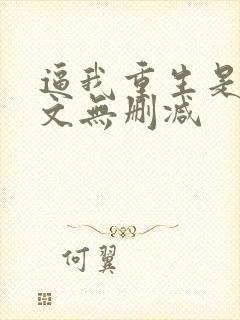 逼我重生是
文無刪減
何翼